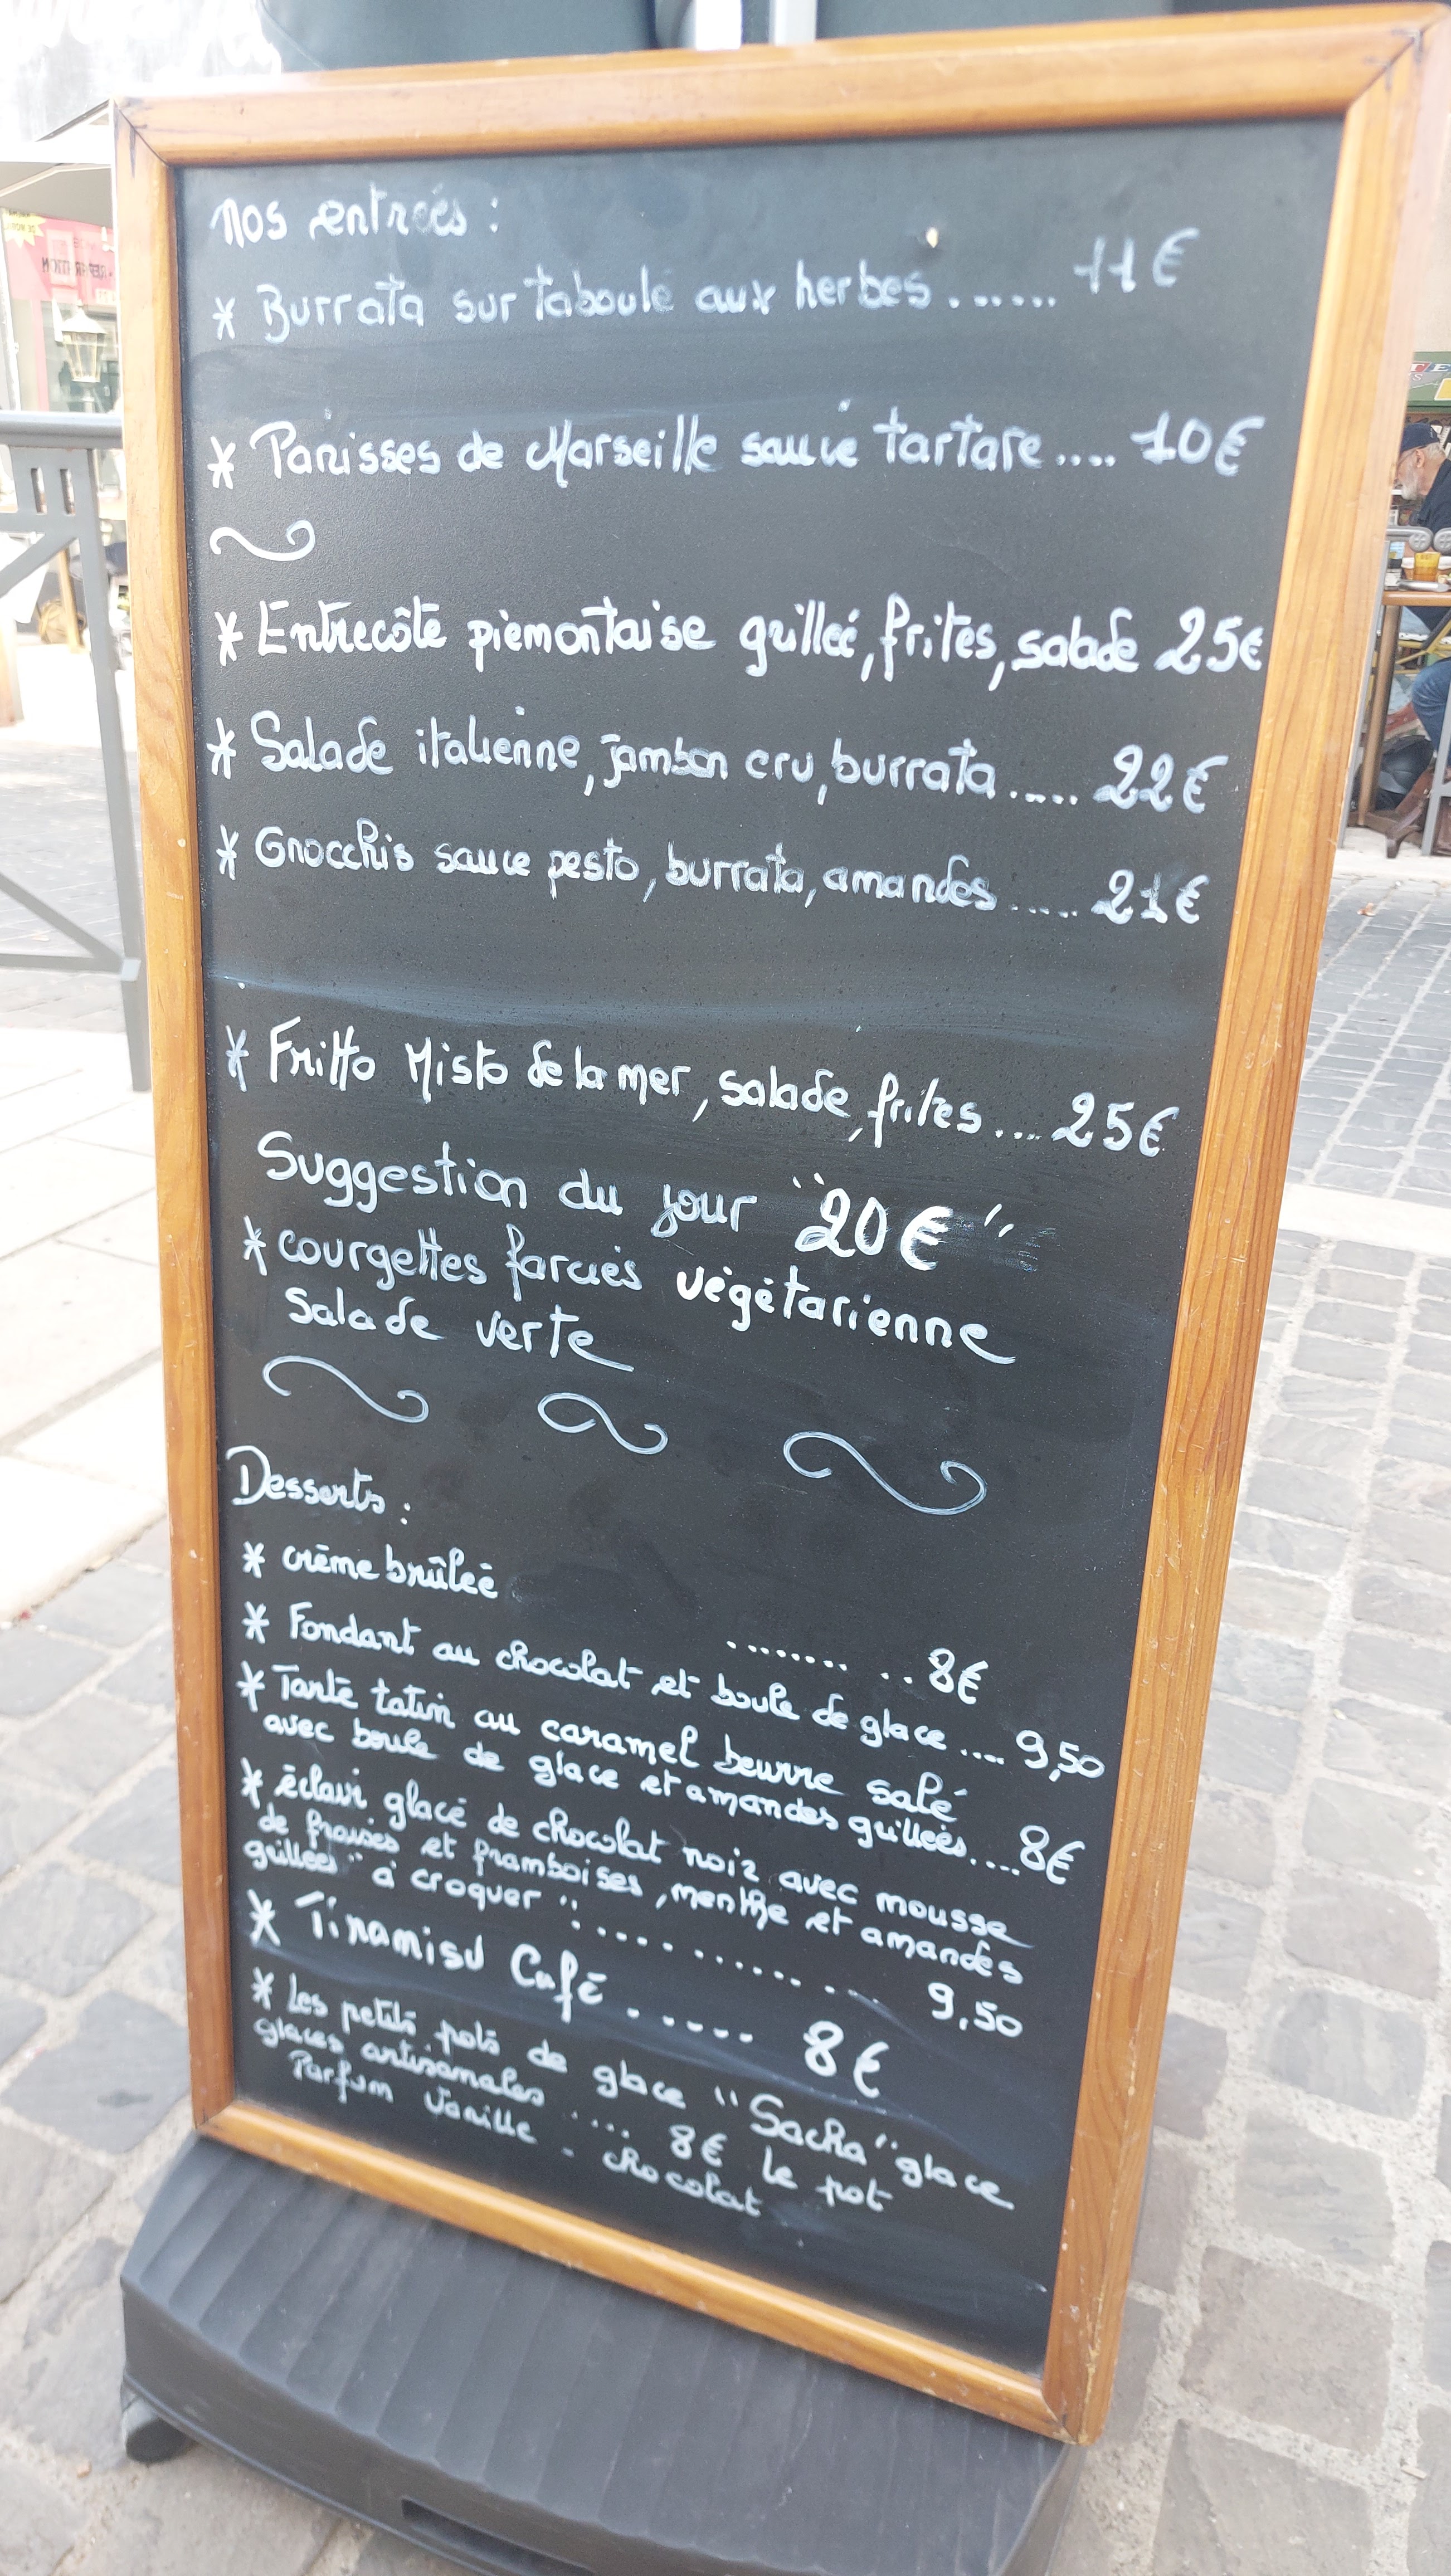 nos entrées :
* Burrata sur taboulé aux herbes ....... 11€
* Panisses de Marseille sauce tartare .... 10€
* Entrecôte piémontaise grillée, frites, salade 25€
* Salade italienne, jambon cru, burrata ..... 22€
* Gnocchis sauce pesto, burrata, amandes ..... 21€
* Fritto Misto de la mer, salade, frites .... 25€
Suggestion du jour "20€"
* courgettes farcies végétarienne
Salade verte
Desserts :
* crème brûlée ......... 8€
* Fondant au chocolat et boule de glace .... 9,50
* Tarte tatin au caramel beurre salé
avec boule de glace et amandes grillées .... 8€
* éclair glacé de chocolat noir avec mousse
de fraises et framboises, menthe et amandes
grillées "à croquer" : ............ 9,50
* Tiramisu Café ..... 8€
* Les petits pots de glace "Sacha" glace
glaces artisanales ..... 8€ le pot
Parfum Vanille - chocolat